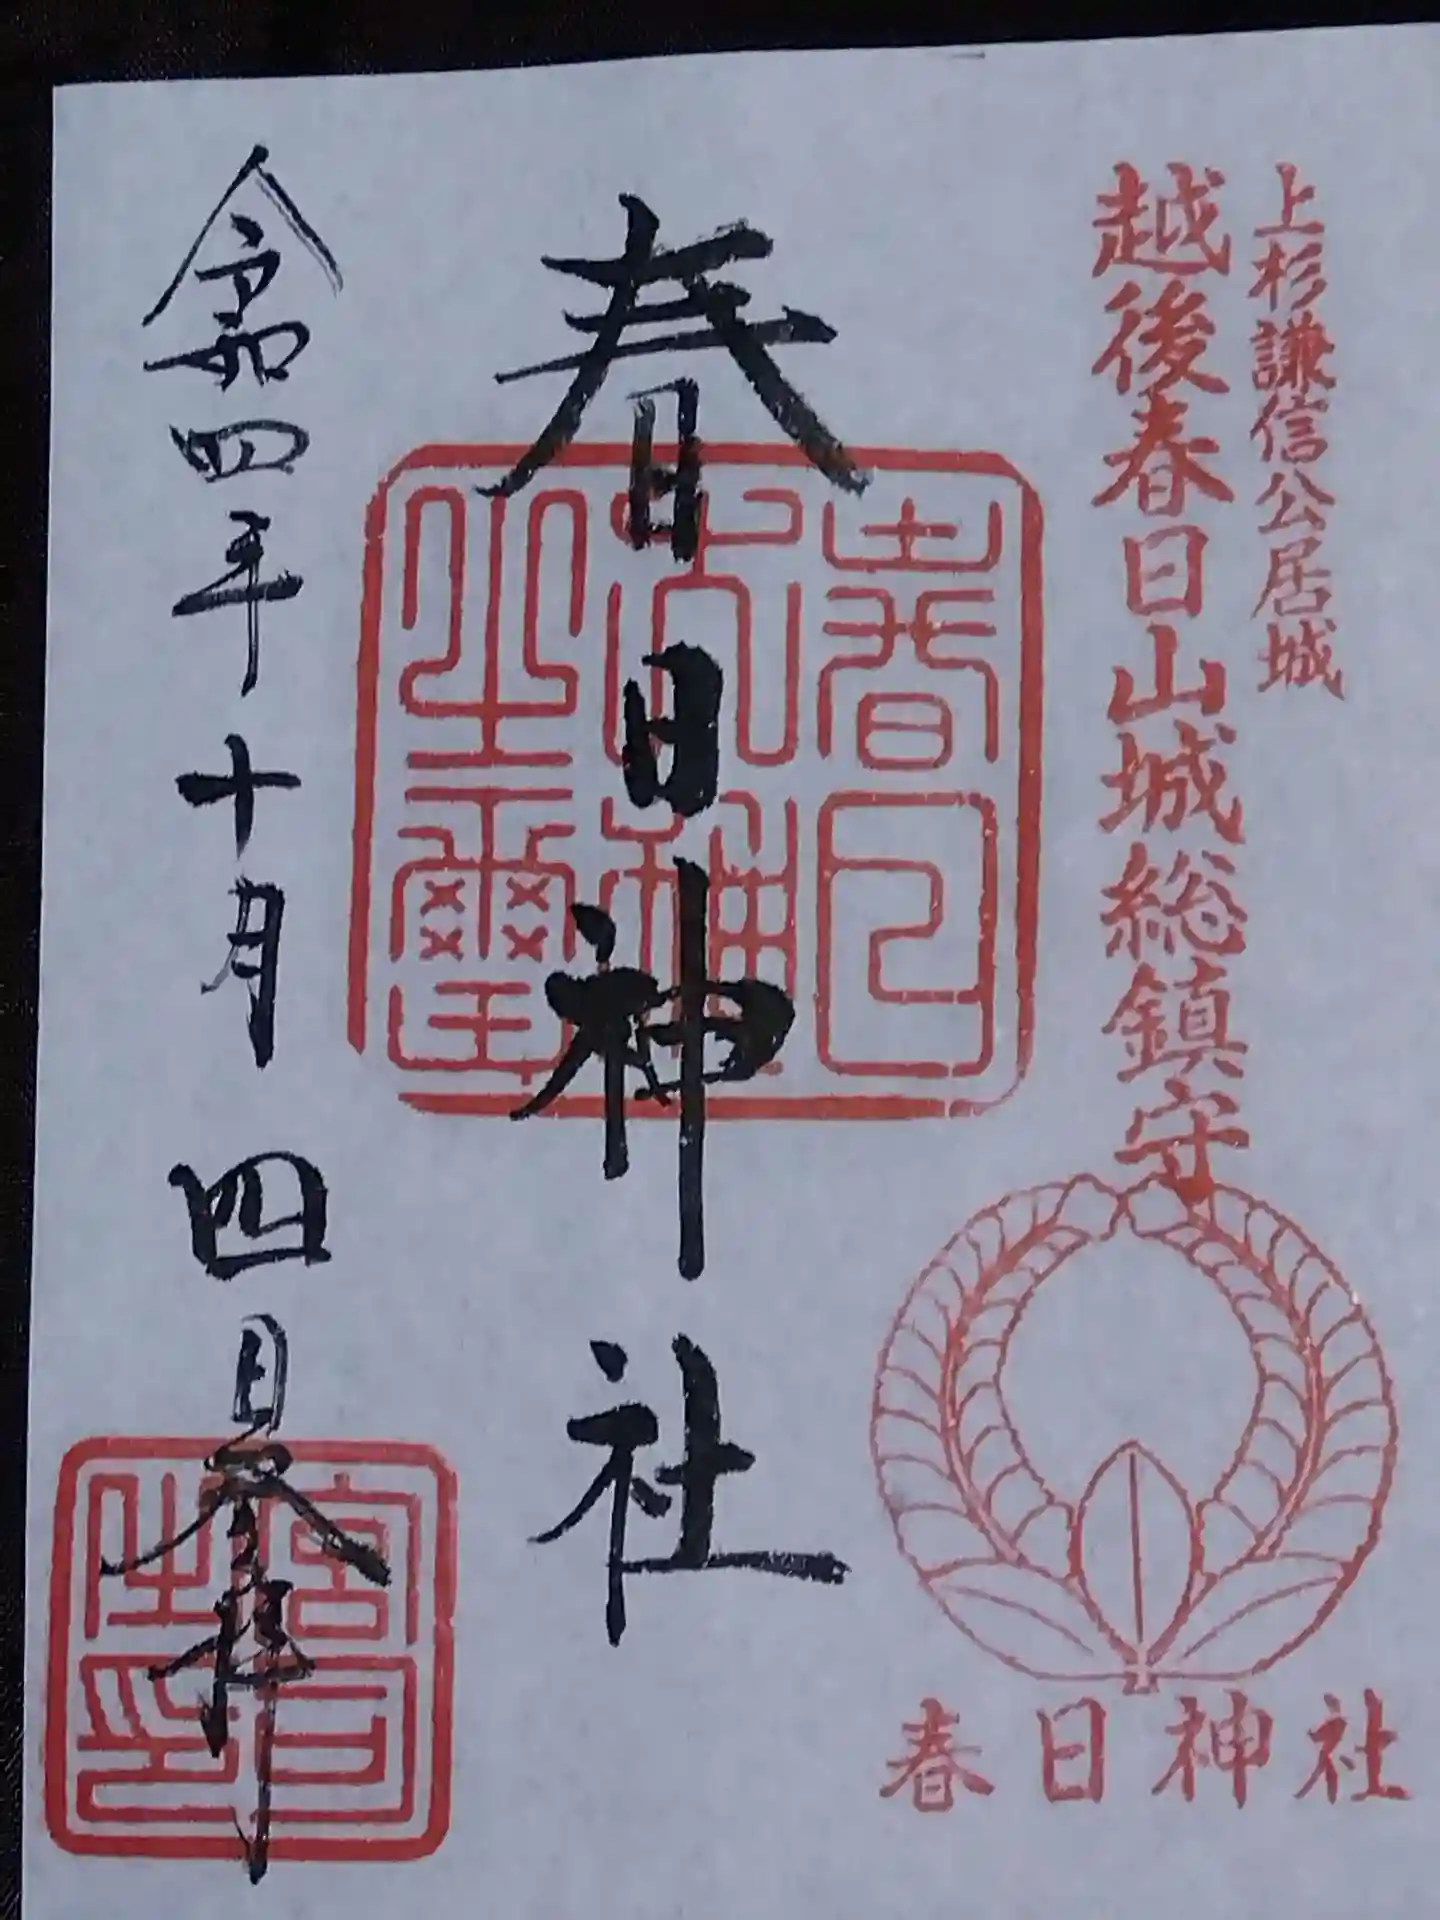 上杉謙信公居城
越後春日山城総鎮守
春日神社
春日神社
春日大神之璽
令和四年十月四日奉拝
宮司之印